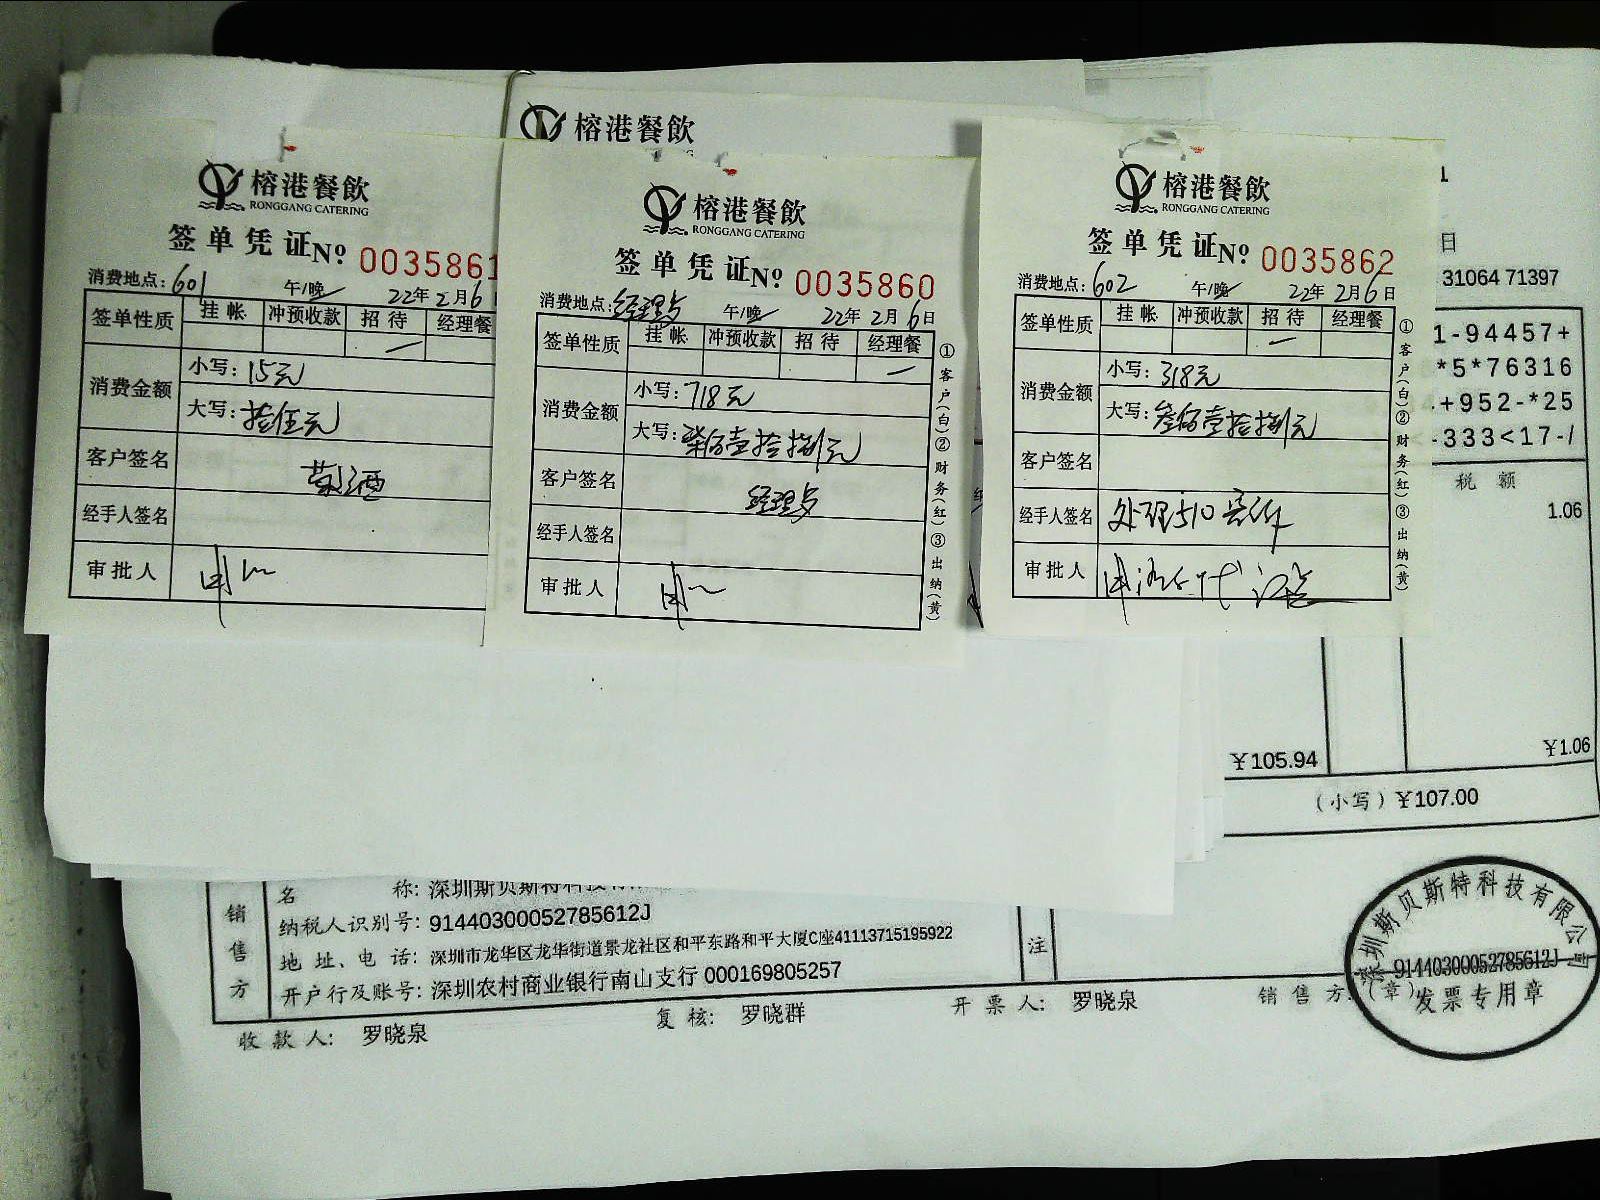 榕港餐飲
榕港餐飲
RONGGANG CATERING
签单凭证No 0035861
消费地点:601 午/晚 22年2月6
签单性质 挂帐 冲预收款 招待 经理餐
消费金额
小写:15元
大写:拾伍元
客户签名
经手人签名
审批人
榕港餐飲
RONGGANG CATERING
签单凭证No 0035860
消费地点:经理房 午/晚 22年2月6日
签单性质 挂帐 冲预收款 招待 经理餐
消费金额
小写:718元
大写:柒佰壹拾捌元
客户签名
经手人签名
审批人
①客户(白)②财务(红)③出纳(黄)
榕港餐飲
RONGGANG CATERING
签单凭证No 0035862
消费地点:602 午/晚 22年2月6日
签单性质 挂帐 冲预收款 招待 经理餐
消费金额
小写:318元
大写:叁佰壹拾捌元
客户签名
经手人签名 处理510
审批人
①客户(白)②财务(红)③出纳(黄)
日
31064 71397
1-94457+
*5*76316
+952-*25
-333<17-/
税额
1.06
¥105.94 ¥1.06
(小写)¥107.00
销售方
名称:深圳斯贝斯特科技有限
纳税人识别号:91440300052785612J
地址、电话:深圳市龙华区龙华街道景龙社区和平东路和平大厦C座41113715195922
开户行及账号:深圳农村商业银行南山支行 000169805257
注
收款人: 罗晓泉 复核: 罗晓群 开票人: 罗晓泉 销售方:(章)
深圳斯贝斯特科技有限公司
91440300052785612J
发票专用章